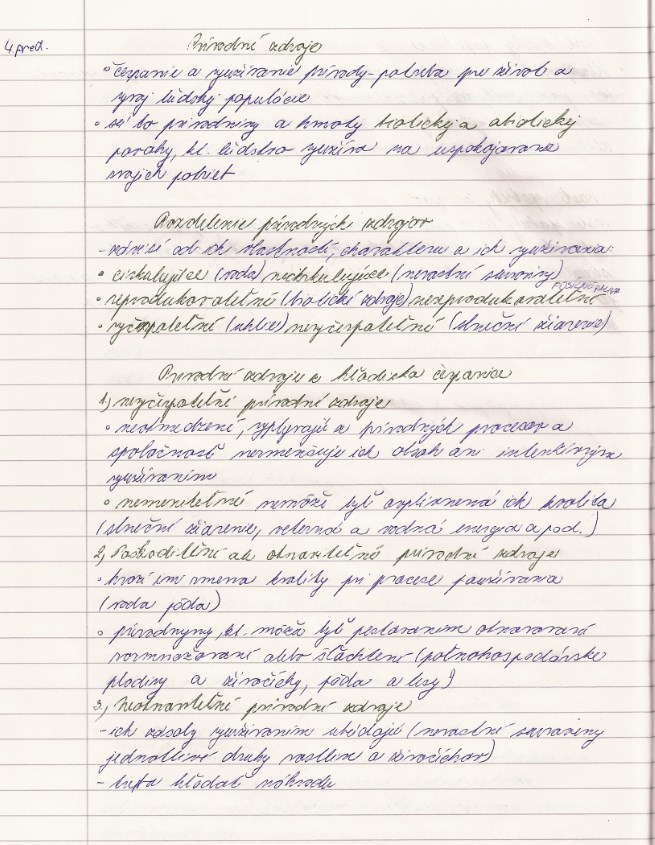 4. pred.
Prírodné zdroje
◦ čerpanie a využívanie prírody - potreba pre život a
vývoj ľudskej populácie
◦ sú to prírodniny a hmoty biotickej a abiotickej
povahy, kt. ľudstvo využíva na uspokojovanie
svojich potrieb
Rozdelenie prírodných zdrojov
- závisí od ich vlastností, charakteru a ich využívania:
• cirkulujúce (voda) necirkulujúce (nerastné suroviny)
• reprodukovateľné (biotické zdroje) nereprodukovateľné
FOSÍLNE PALIVÁ
• vyčerpateľné (uhlie) nevyčerpateľné (slnečné žiarenie)
Prírodné zdroje z hľadiska čerpania
1) nevyčerpateľné prírodné zdroje
◦ neobmedzené, vyplývajú z prírodných procesov a
spoločnosť nezmenšuje ich obsah ani intenzívnym
využívaním
◦ nemeniteľné nemôže byť ovplivnená ich kvalita
(slnečné žiarenie, veterná a vodná energia a pod.)
2) Poškoditeľné ale obnoviteľné prírodné zdroje
• hrozí im zmena kvality pri procese používania
(voda pôda)
◦ prírodniny, kt. môžu byť pestovaním obnovované
rozmnožované alebo šľachtené (poľnohospodárske
plodiny a živočíchy, pôda a lesy)
3) Neobnoviteľné prírodné zdroje
- ich zásoby využívaním ubúdajú (nerastné suroviny
jednotlivé druhy rastlín a živočíchov)
- treba hľadať náhradu